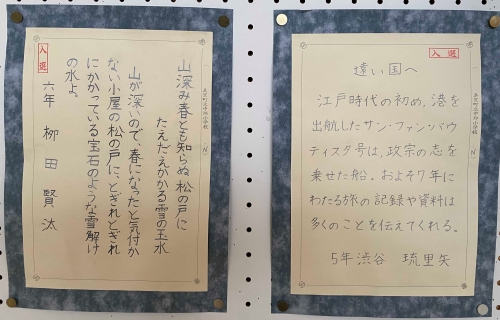 入選
山深み春とも知らぬ松の戸に
たえだえかかる雪の玉水
山が深いので、春になったと気付か
ない小屋の松の戸に、とぎれとぎれ
にかかっている宝石のような雪解け
の水よ。
六年 柳田賢汰
入選
遠い国へ
江戸時代の初め、港を
出航したサン・ファン・バウ
ティスタ号は、政宗の志を
乗せた船。およそ7年に
わたる旅の記録や資料は
多くのことを伝えてくれる。
5年渋谷 琉里矢